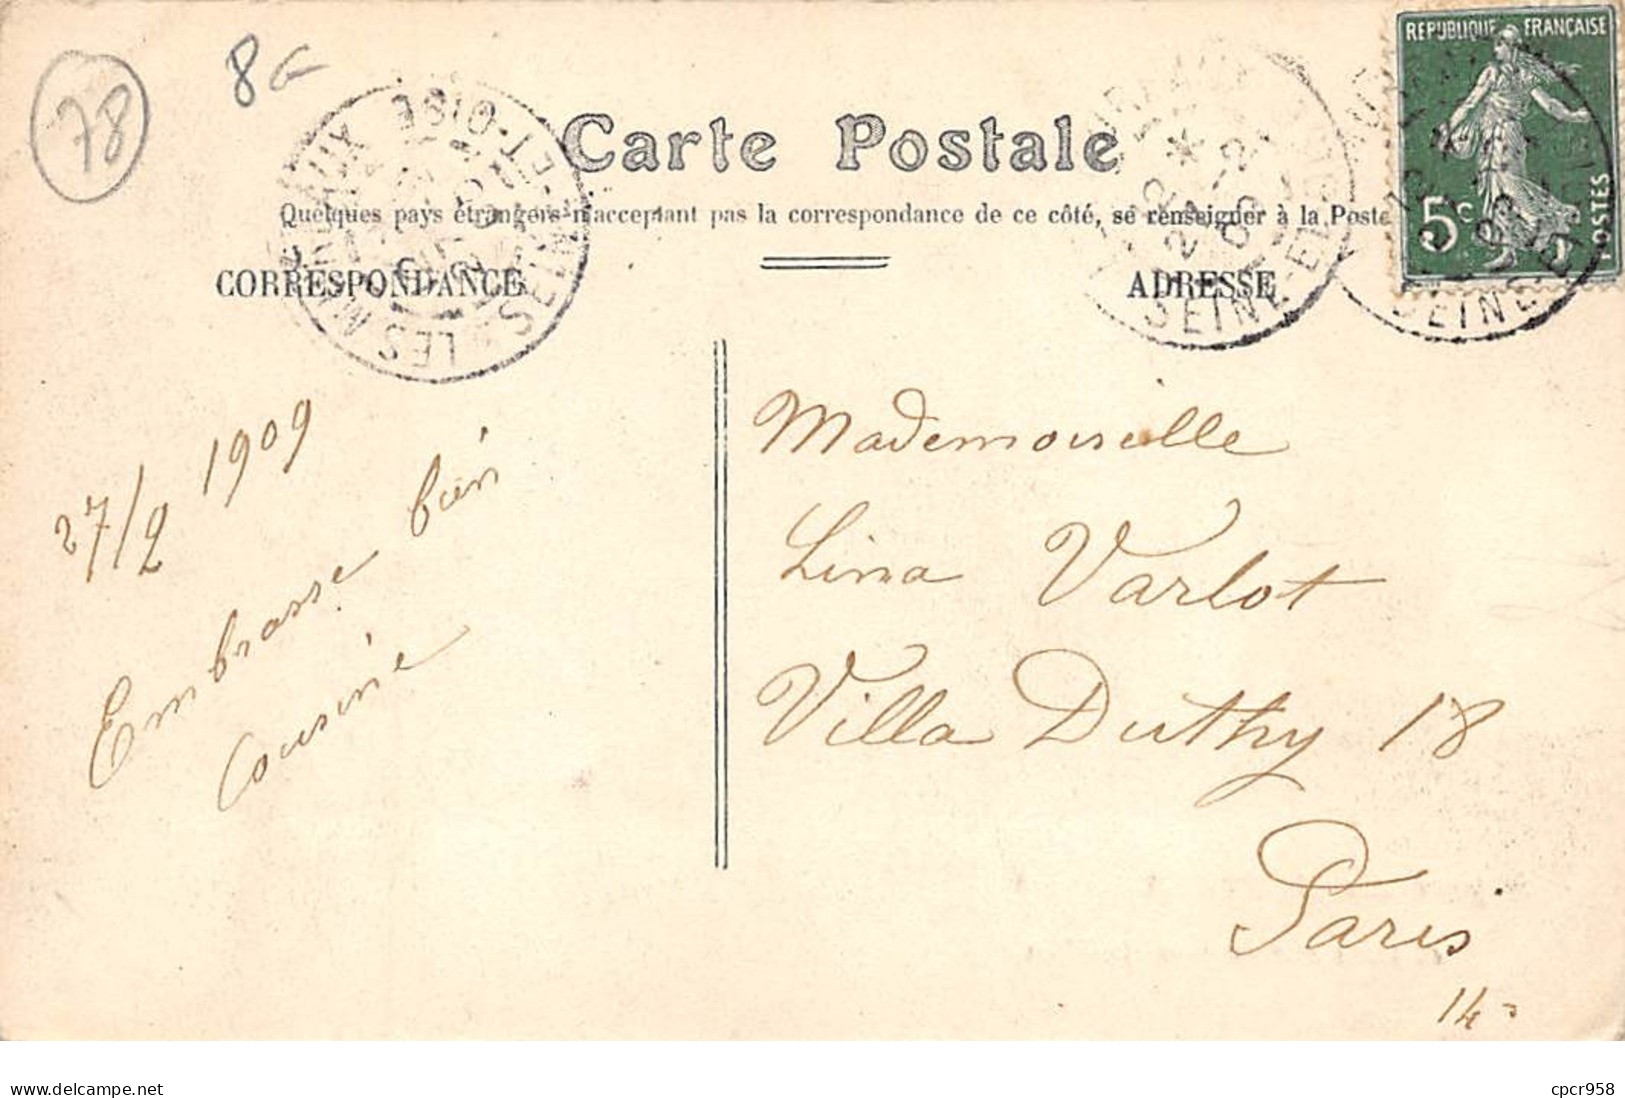 78
8G
REPUBLIQUE FRANÇAISE
5c
POSTES
Carte Postale
Quelques pays étrangers n'acceptant pas la correspondance de ce côté, se renseigner à la Poste
CORRESPONDANCE
ADRESSE
LES MUREAUX
SEINE-ET-OISE
SEINE-ET-
SEINE-ET-
27/2 1909
Embrasse bien
Cousine
Mademoiselle
Lina Varlot
Villa Duthy 18
Paris
14
delcampe.net
cpcr958